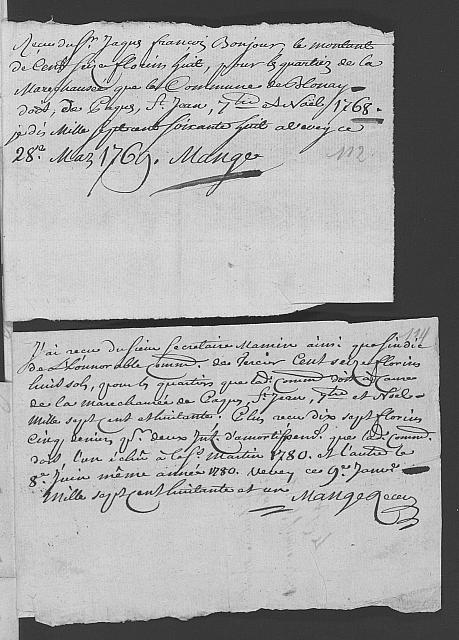 Receu du Sr. Jaques françois Bonjour, le montant
de Cent seize florins huit, pour les quartiers de la
Marechaussée que la Commune de Blonay
doit, de Paques, St. Jean, 7bre et Noël, 1768.
je dis Mille septcent soixante huit a Vevey ce
28e. Mars 1769. Mange
112
134
J'ai receu du Sieur Secretaire Mamin ainsi que sindic
de L'honnorable Comm. de Cent seize florins
huit sols, pour les quartiers que lad. Comm. doit a Cause
de la marechaussée de Paques St. Jean, 7bre et Noël
Mille sept cent et huitante. Plus receu dix sept florins
cinq deniers pr. deux d'amortissem. que lad. Comm.
doit l'un échu à la St. Martin 1780. et l'autre le
8e. Juin même année 1780. Vevey ce 9e. Janv.
Mille sept cent huitante et un
Mange Recev